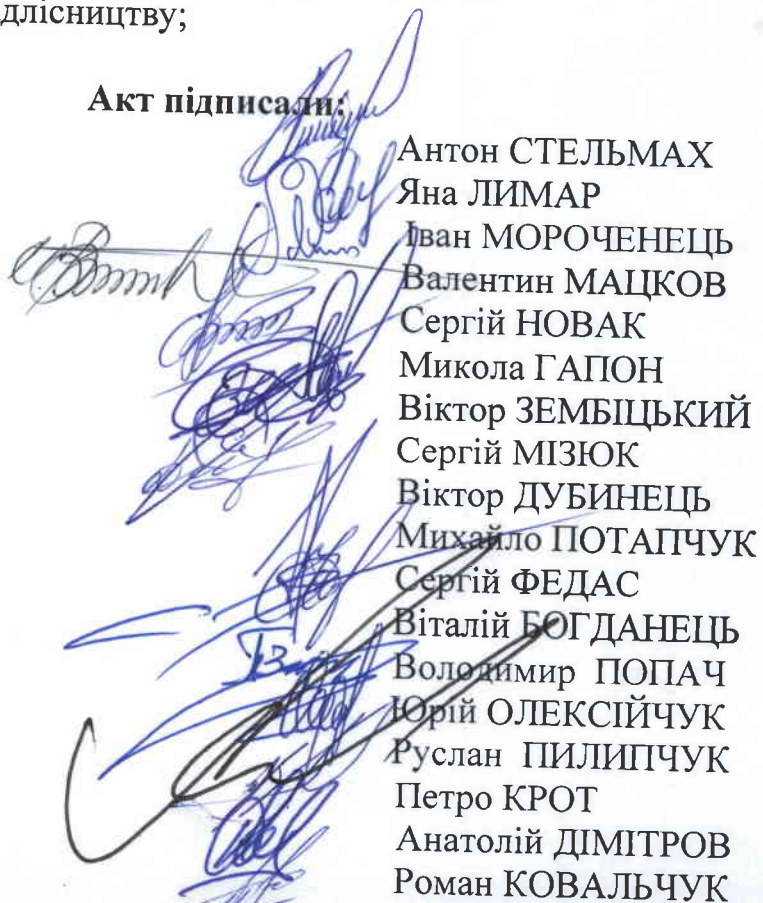 длісництву;
Акт підписали:
Антон СТЕЛЬМАХ
Яна ЛИМАР
Іван МОРОЧЕНЕЦЬ
Валентин МАЦКОВ
Сергій НОВАК
Микола ГАПОН
Віктор ЗЕМБІЦЬКИЙ
Сергій МІЗЮК
Віктор ДУБИНЕЦЬ
Михайло ПОТАПЧУК
Сергій ФЕДАС
Віталій БОГДАНЕЦЬ
Володимир ПОПАЧ
Юрій ОЛЕКСІЙЧУК
Руслан ПИЛИПЧУК
Петро КРОТ
Анатолій ДІМІТРОВ
Роман КОВАЛЬЧУК